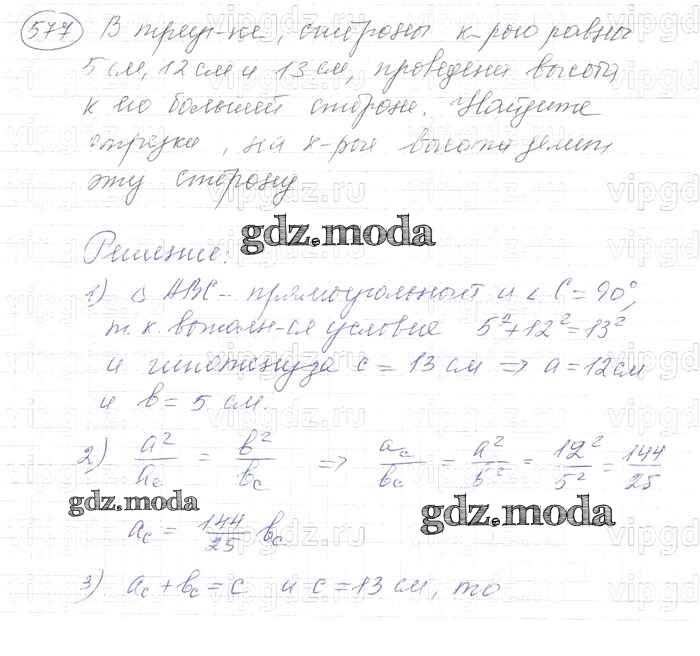 577 В треуг-ке, стороны к-рого равны
5 см, 12 см и 13 см, проведена высота
к его большей стороне. Найдите
отрезки, на к-рые высота делит
эту сторону
gdz.moda
Решение:
1) △ ABC - прямоугольный и ∠ C = 90°,
т.к. выполн-ся условие 5² + 12² = 13²
и гипотенуза c = 13 см ⇒ a = 12 см
и b = 5 см.
2) a²/a_c = b²/b_c ⇒ a_c/b_c = a²/b² = 12²/5² = 144/25
gdz.moda
gdz.moda
a_c = 144/25 b_c
3) a_c + b_c = c и c = 13 см, то